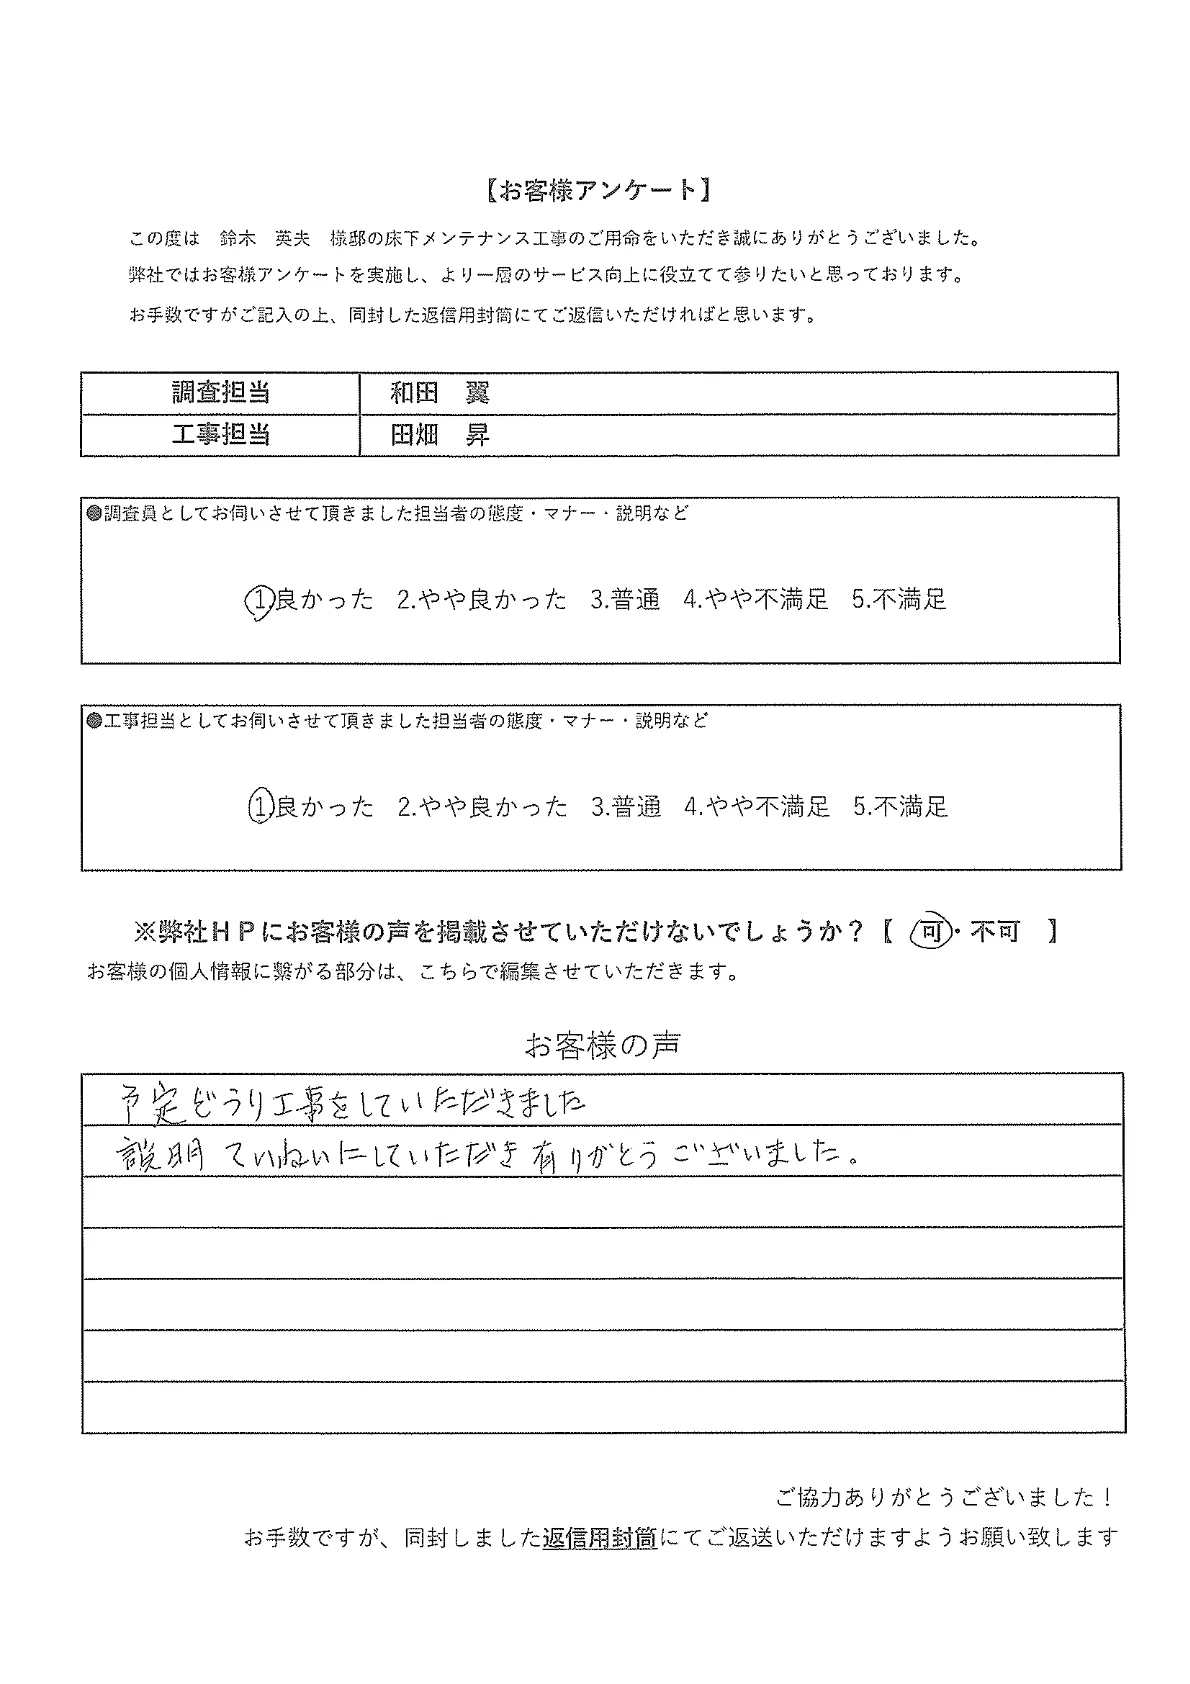 【お客様アンケート】
この度は 鈴木 英夫 様邸の床下メンテナンス工事のご用命をいただき誠にありがとうございました。
弊社ではお客様アンケートを実施し、より一層のサービス向上に役立てて参りたいと思っております。
お手数ですがご記入の上、同封した返信用封筒にてご返信いただければと思います。
調査担当 和田 翼
工事担当 田畑 昇
●調査員としてお伺いさせて頂きました担当者の態度・マナー・説明など
1良かった 2.やや良かった 3.普通 4.やや不満足 5.不満足
●工事担当としてお伺いさせて頂きました担当者の態度・マナー・説明など
1良かった 2.やや良かった 3.普通 4.やや不満足 5.不満足
※弊社HPにお客様の声を掲載させていただけないでしょうか？【 可・不可 】
お客様の個人情報に繋がる部分は、こちらで編集させていただきます。
お客様の声
予定どうり工事をしていただきました
説明ていねいにしていただき有りがとうございました。
ご協力ありがとうございました！
お手数ですが、同封しました返信用封筒にてご返送いただけますようお願い致します